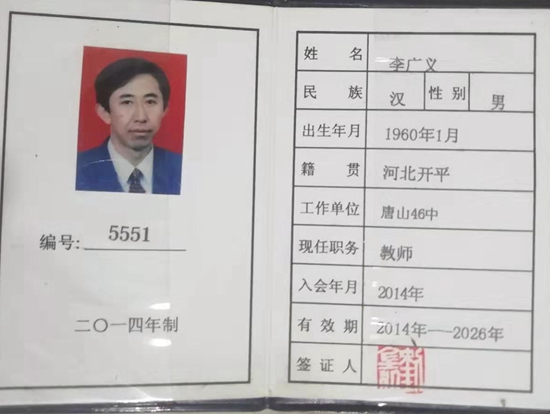 编号: 5551
二〇一四年制
姓名 李广义
民族 汉 性别 男
出生年月 1960年1月
籍贯 河北开平
工作单位 唐山46中
现任职务 教师
入会年月 2014年
有效期 2014年——2026年
签证人